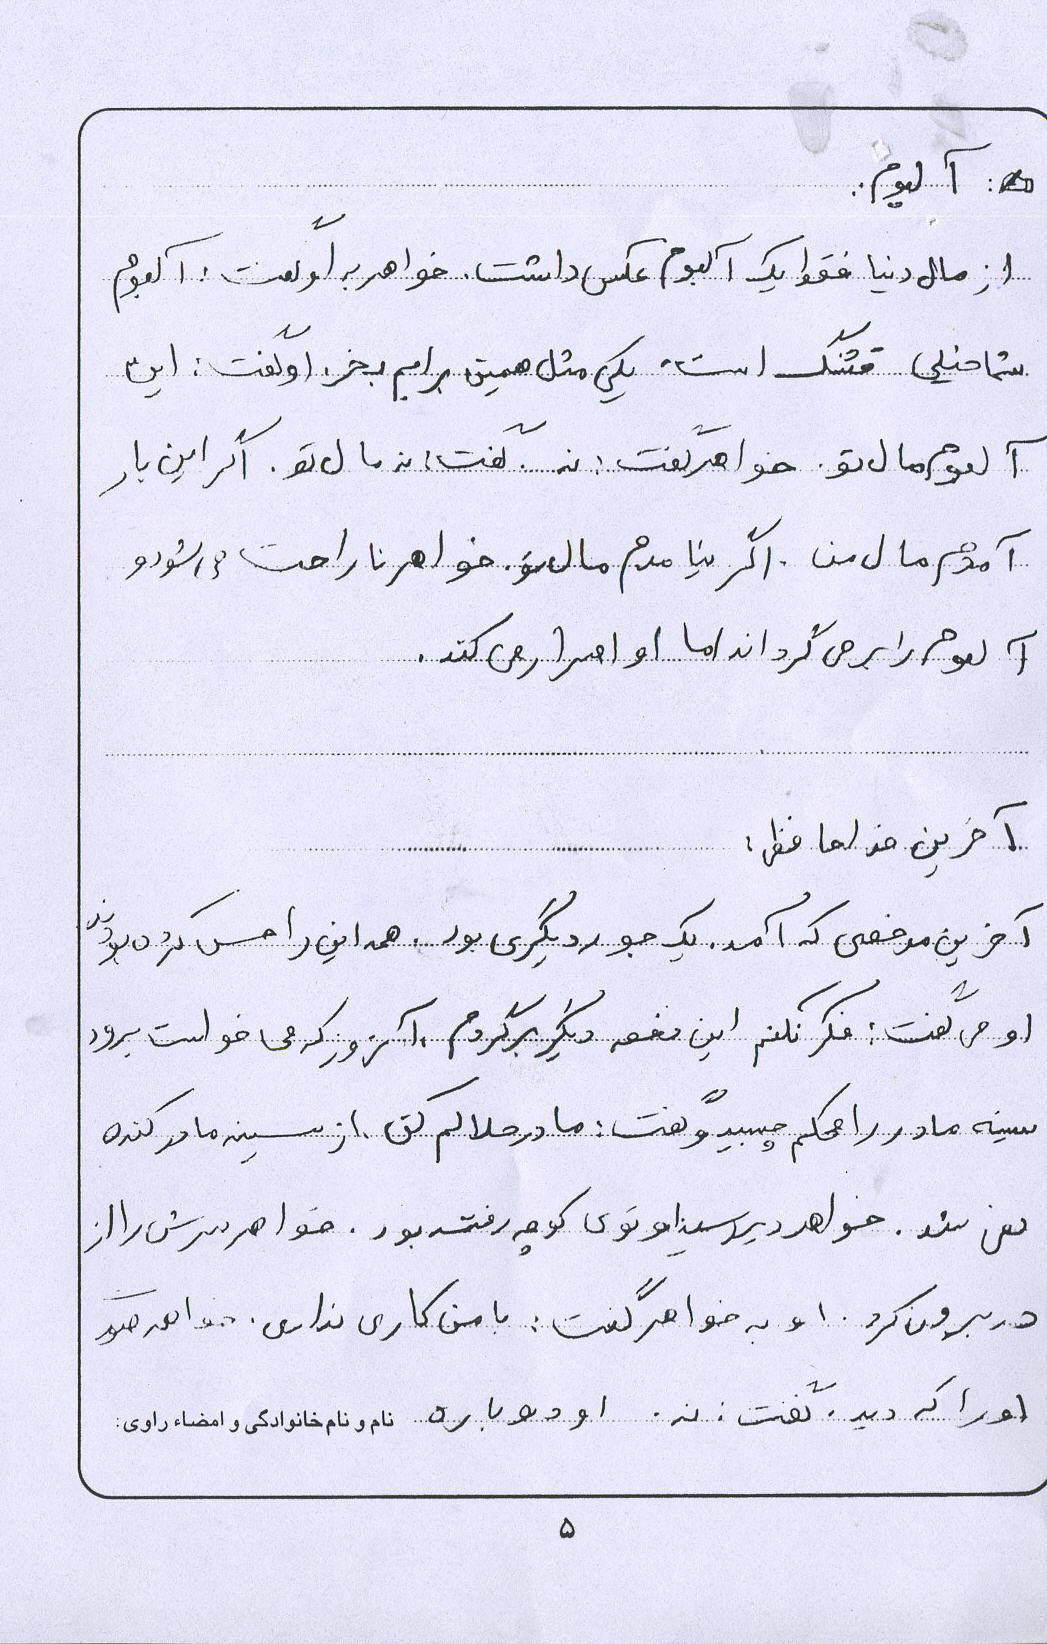 آلبوم:
از مال دنیا فقط یک آلبوم عکس داشت. خواهر به او گفت: آلبوم
شما خیلی قشنگ است. یکی مثل همین برایم بخر. او گفت: این
آلبوم مال تو. خواهر گفت: نه. گفت: نه مال تو. اگر این بار
آمدم مال من. اگر نیامدم مال تو. خواهر ناراحت می شود و
آلبوم را برمی گرداند اما او اصرار می کند.
آخرین خداحافظی:
آخرین مرخصی که آمد. یک جور دیگری بود. همه این را حس کرده بودند
او می گفت: فکر نکنم این دفعه دیگر برگردم. آنروز که می خواست برود
سینه مادر را محکم چسبید و گفت: مادر حلالم کن. از سینه مادر کنده
نمی شد. خواهر دیر رسید او توی کوچه رفته بود. خواهر سرش را از
در بیرون کرد. او به خواهر گفت: با من کاری نداری. خواهر
او را که دید. گفت: نه. او دوباره
نام و نام خانوادگی و امضاء راوی:
۵